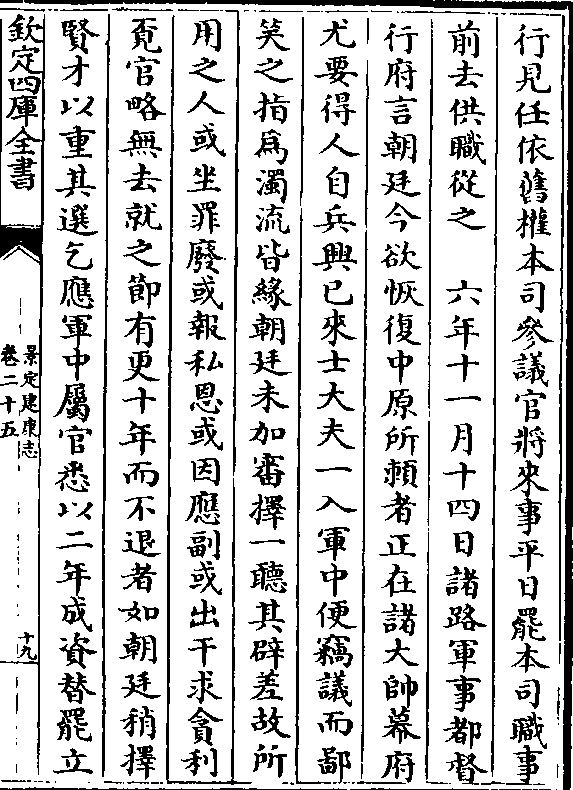 行見任依舊權本司參議官將來事平日罷本司職事
前去供職從之　六年十一月十四日諸路軍事都督
行府言朝廷今欲恢復中原所賴者正在諸大帥幕府
尤要得人自兵興已來士大夫一入軍中便竊議而鄙
笑之指為濁流皆緣朝廷未加審擇一聽其辟差故所
用之人或坐罪廢或報私恩或因應副或出干求貪利
覓官略無去就之節有更十年而不退者如朝廷稍擇
賢才以重其選乞應軍中屬官悉以二年成資替罷立
欽定四庫全書
景定建康志
卷二十五
十九